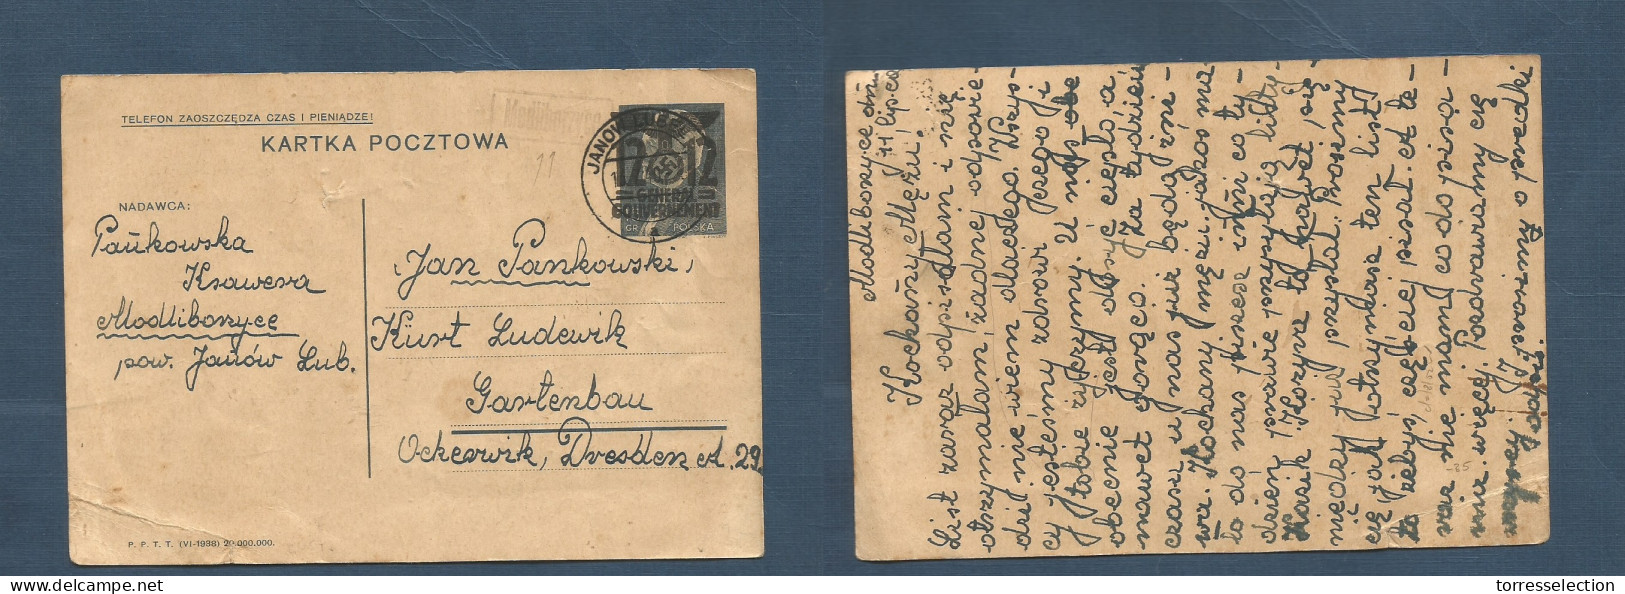 TELEFON ZAOSZCZĘDZA CZAS I PIENIĄDZE!
KARTKA POCZTOWA
JANOW LUBEL
12 12
GENERAL
GOUVERNEMENT
GR POLSKA
NADAWCA:
Pańkowska
Ksawera
Modliborzyce
pow. Janów Lub.
Jan Pankowski
Kurt Ludewik
Gartenbau
Ockerwik, Dresden A. 29.
P. P. T. T. (VI-1938) 20.000.000.
Modliborzyce dn
11 lipca
Kochany Mężu!
List zaraz odpisałam i nie
otrzymałam żadnej odpowie-
dzi nie wiem dlaczego. Wszys-
cy jesteśmy zdrowi czego i
Tobie życzymy. U nas
obecnie jest dosyć ciepło, a
nawet gorąco. Za tydzień
czasu u nas już będą żni-
wa. Kochany mężu jakoś ma-
ło do nas piszesz
dzień prawie przysyłają listy
niedby już przysłał. Prosimy
Cię jak otrzymasz ten list
żebyś częściej pisał
nie mamy co do pisa-
nia więcej. Pozdrawiamy Cię
torresselection